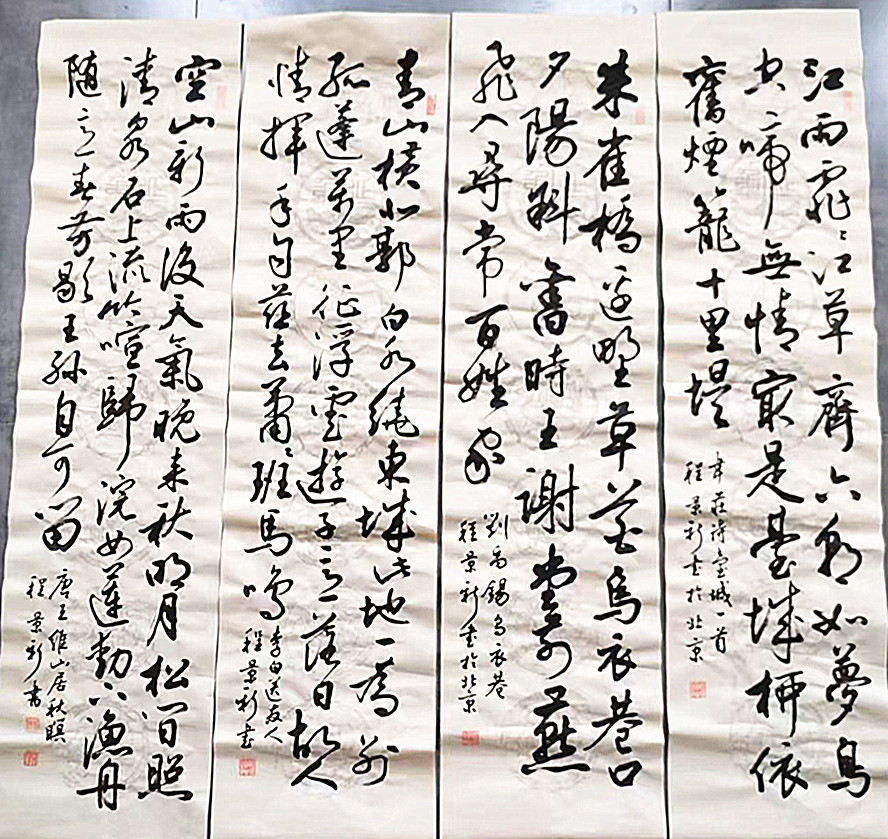 江雨霏〻江草齊六朝如夢鳥
空啼無情最是臺城柳依
舊煙籠十里堤
韋莊詩臺城一首
程景新書於北京
朱雀橋邊野草花烏衣巷口
夕陽斜舊時王謝堂前燕
飛入尋常百姓家
劉禹錫烏衣巷
程景新書於北京
青山橫北郭白水繞東城此地一為別
孤蓬萬里征浮雲遊子意落日故人
情揮手自茲去蕭〻班馬鳴
李白送友人
程景新書
空山新雨後天氣晚來秋明月松間照
清泉石上流竹喧歸浣女蓮動下漁舟
隨意春芳歇王孫自可留
唐王維山居秋暝
程景新書